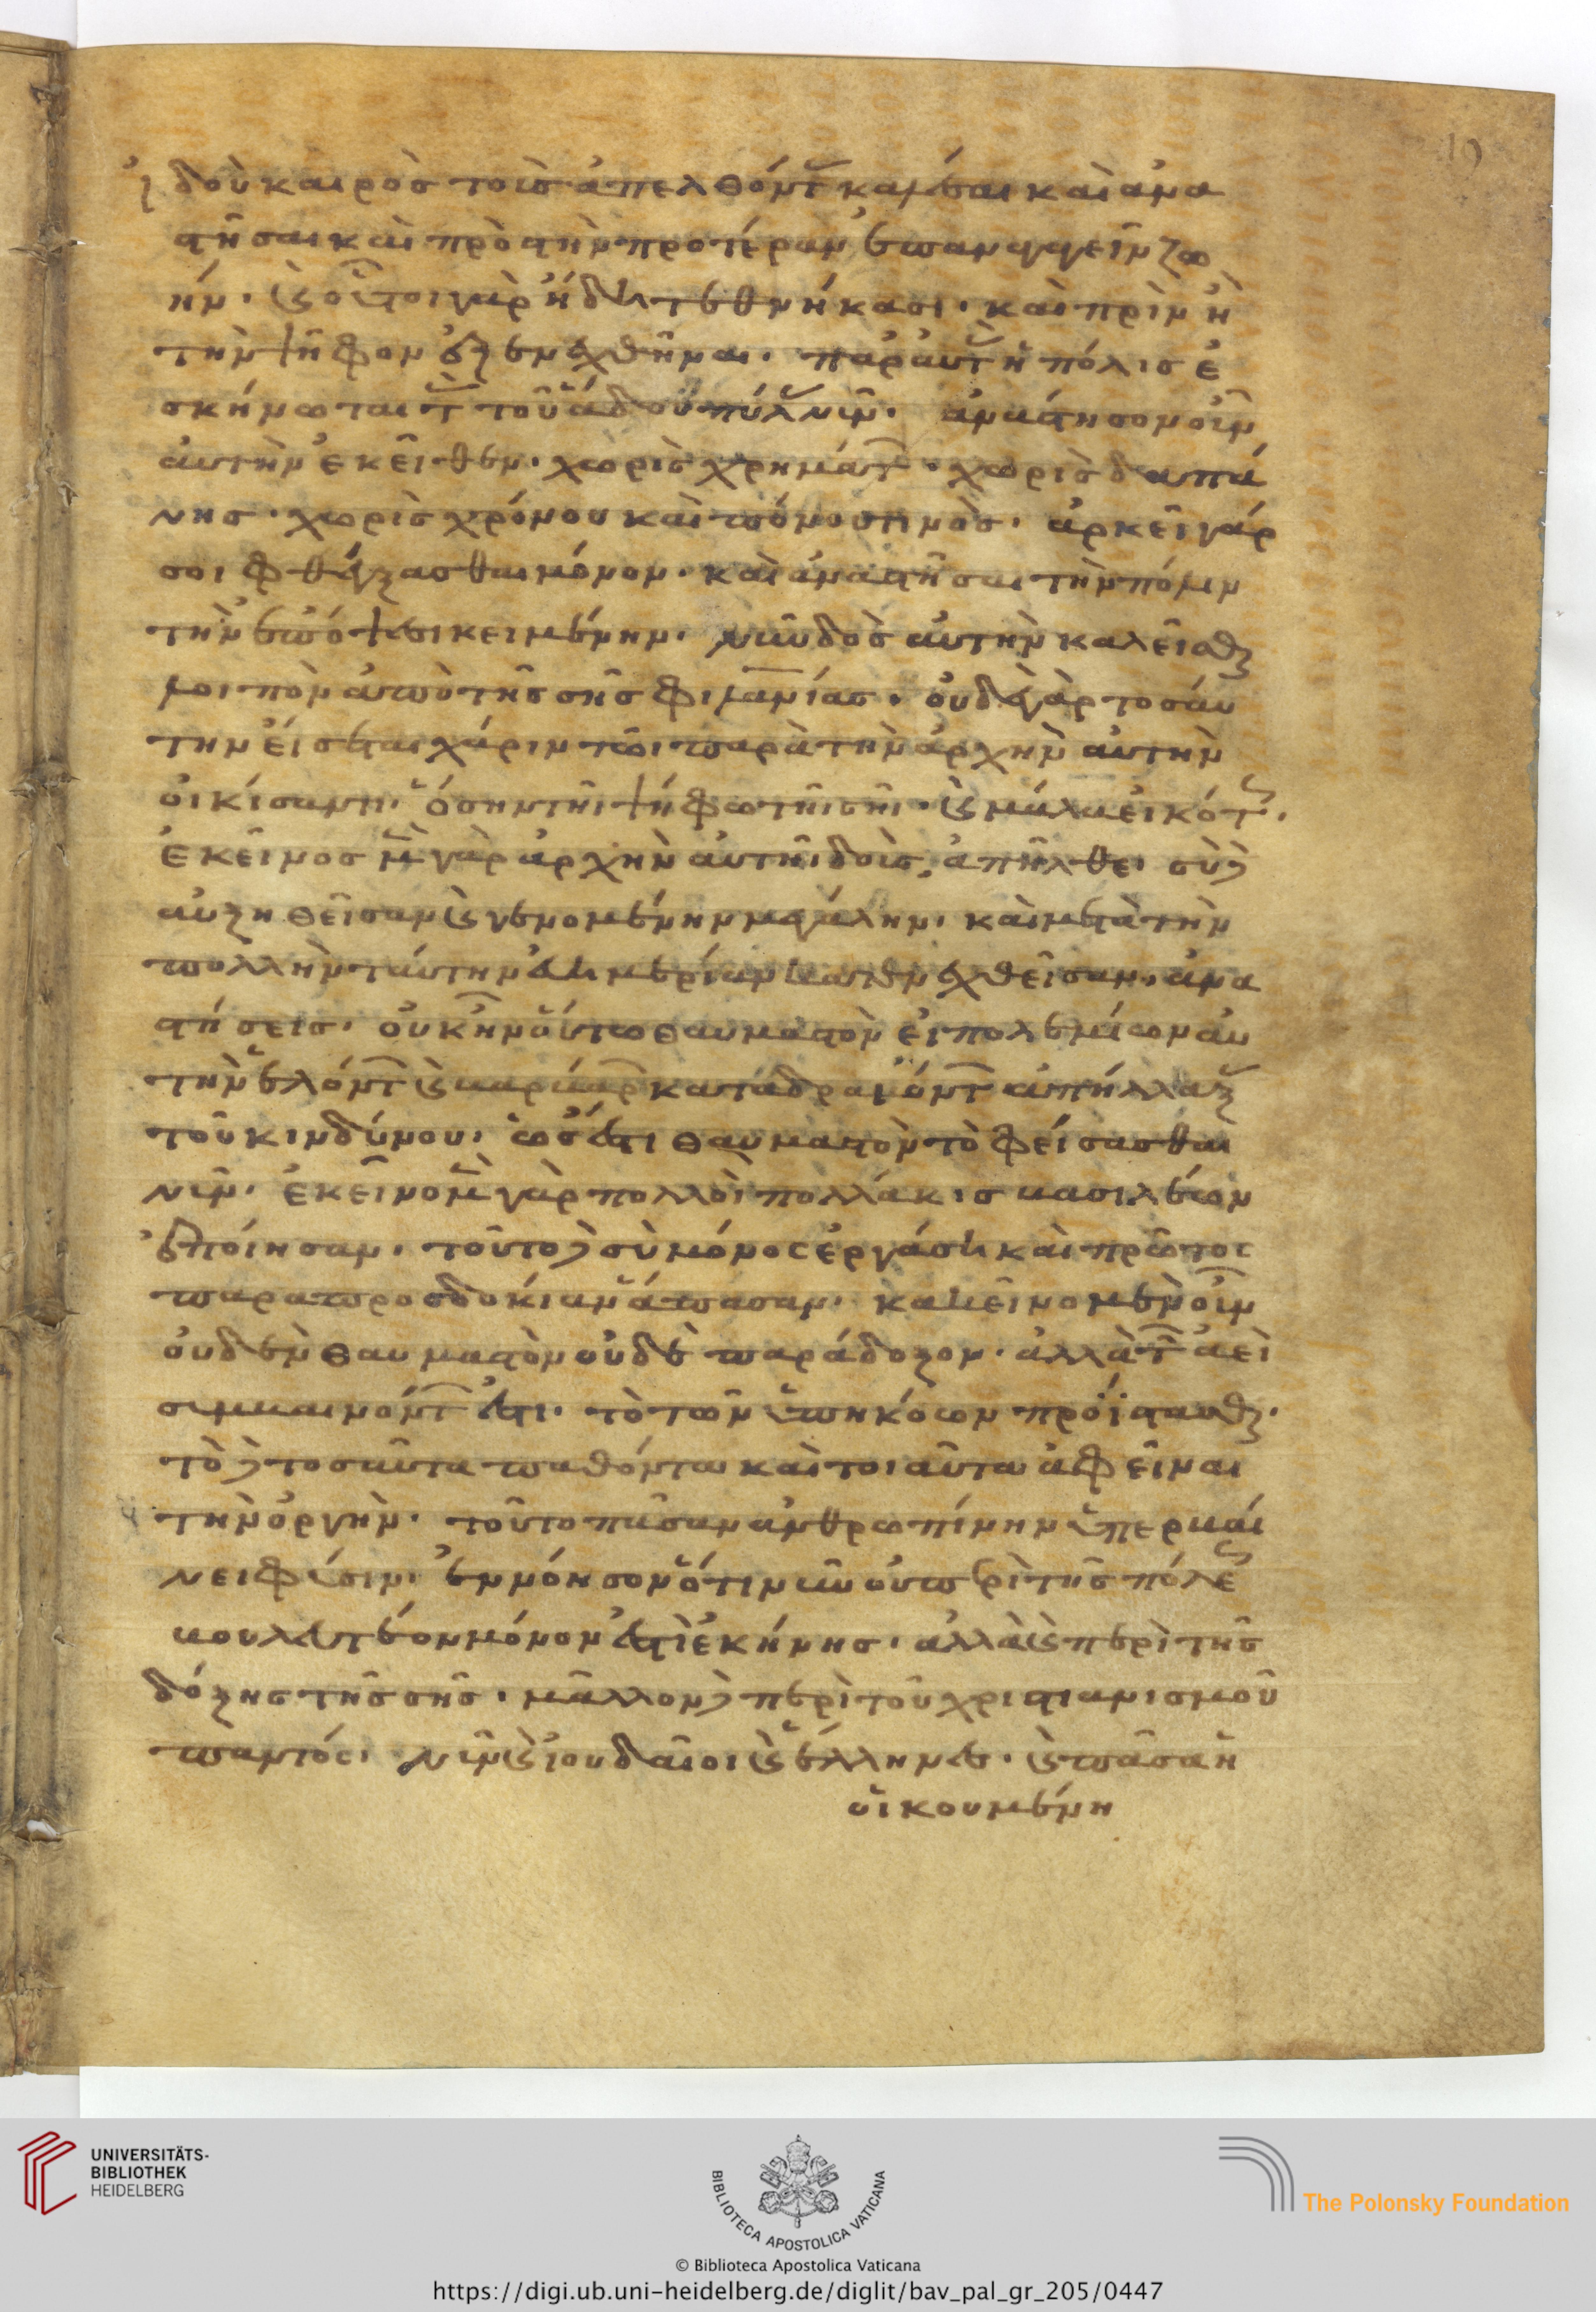 ἰδοὺ καιρὸς τοὺς ἀπελθόντ καλέσαι καὶ ἀνα
στῆσαι καὶ πρὸς τὴν προτέραν ἐπαναγαγεῖν ζω
ήν. καὶ οὗτοι γὰρ ἤδη τεθνήκασι. καὶ πρὶν ἢ
τὴν ψῆφον ἐξενεχθῆναι. παρ' αὐτὰς ἡ πόλις ἐ
σκήνωται τὰς τοῦ ἅδου πύλας νῦν. ἀνάστησον οὖν
αὐτὴν ἐκεῖθεν. χωρὶς χρημάτ. χωρὶς δαπά
νης. χωρὶς χρόνου καὶ πόνου τινός. ἀρκεῖ γάρ
σοι φθέγξασθαι μόνον. καὶ ἀναστῆσαι τὴν πόλιν
τὴν ἐν σκότει κειμένην. νῦν δὸς αὐτὴν καλεῖσθαι
λοιπὸν ἀπὸ τῆς σῆς φιλανίας. οὐδὲ γὰρ τοσαύ
την εἴσεται χάριν τῶι παρὰ τὴν ἀρχὴν αὐτὴν
οἰκίσαντι. ὅσην τῆι ψήφω τῆι σῆι. καὶ μάλα εἰκότ.
ἐκεῖνος μὲν γὰρ ἀρχὴν αὐτῆι δοὺς, ἀπῆλθε. σὺ δὲ
αὐξηθεῖσαν καὶ γενομένην μεγάλην. καὶ μετὰ τὴν
πολλὴν ταύτην εὐημερίαν κατενεχθεῖσαν. ἀνα
στήσεις. οὐκ ἦν οὕτω θαυμαστὸν εἰ πολεμίων αὐ
τὴν ἑλόντ καὶ βαρβάρ καταδραμόντ ἀπήλλαξας
τοῦ κινδύνου. ὡς ἐστι θαυμαστὸν τὸ φείσασθαι
νῦν. ἐκεῖνο μὲν γὰρ πολλοὶ πολλάκις βασιλέων
ἐποίησαν. τοῦτο δὲ σὺ μόνος ἐργάση καὶ πρῶτος
παρὰ προσδοκίαν ἅπασαν. κἀκεῖνο μὲν οὖν
οὐδὲν θαυμαστὸν οὐδὲ παράδοξον. ἀλλὰ τῶν ἀεὶ
συμβαινόντ ἐστι. τὸ τῶν ὑπηκόων προΐστασθαι.
τὸ δὲ τοσαῦτα παθόντα καὶ τοιαῦτα ἀφεῖναι
τὴν ὀργὴν. τοῦτο πᾶσαν ἀνθρωπίνην ὑπερβαί
νει φύσιν. ἐννόησον ὅτι νῦν οὐ περὶ τῆς πόλε
βουλευτέον μόνον ἐστὶ ἐκείνης. ἀλλὰ καὶ περὶ τῆς
δόξης τῆς σῆς. μᾶλλον δὲ περὶ τοῦ χριστιανισμοῦ
παντός. νῦν καὶ ἰουδαῖοι καὶ ἕλληνες. καὶ πᾶσα ἡ
οἰκουμένη
19
UNIVERSITÄTS-
BIBLIOTHEK
HEIDELBERG
BIBLIOTECA APOSTOLICA VATICANA
© Biblioteca Apostolica Vaticana
The Polonsky Foundation
https://digi.ub.uni-heidelberg.de/diglit/bav_pal_gr_205/0447